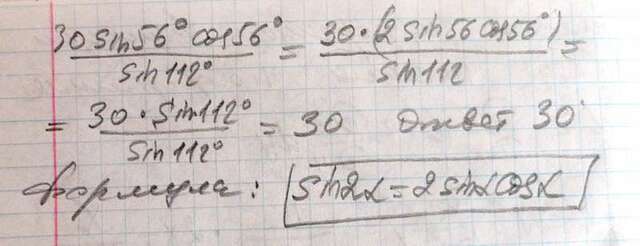 30 sin56° cos56° / sin112° = 30·(2 sin56 cos56°) / sin112 =
= 30·sin112° / sin112° = 30 Ответ 30
Формула: sin2α=2sinαcosα